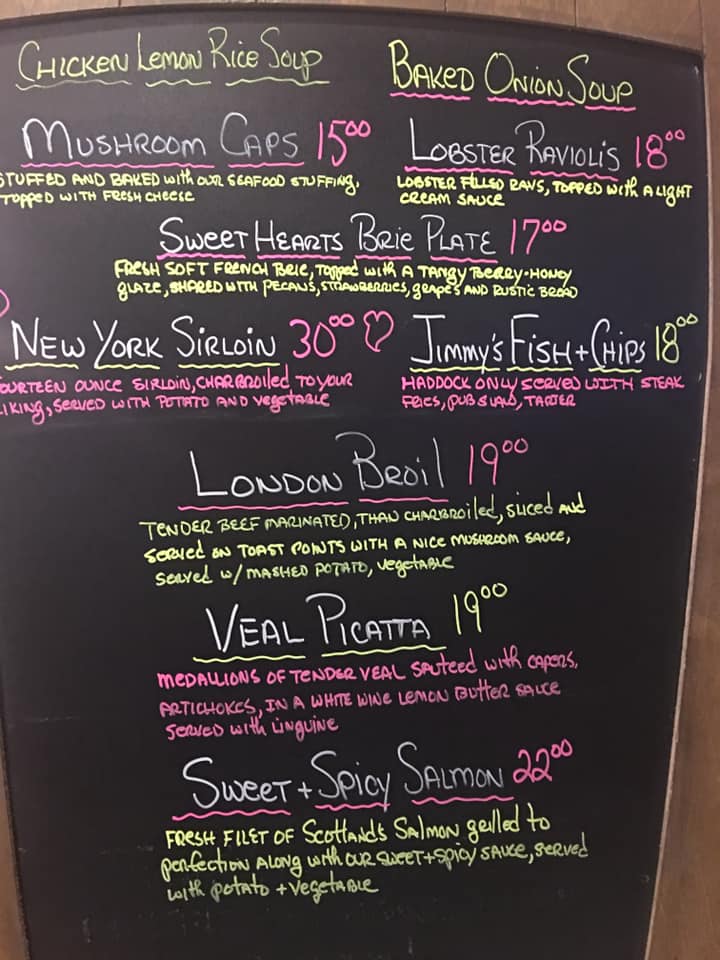 CHICKEN LEMON RICE SOUP
BAKED ONION SOUP
MUSHROOM CAPS 15⁰⁰
STUFFED AND BAKED with OUR SEAFOOD STUFFING,
TOPPED WITH FRESH CHEESE
LOBSTER RAVIOLIS 18⁰⁰
LOBSTER FILLED RAVS, TOPPED WITH A LIGHT
CREAM SAUCE
SWEET HEARTS BRIE PLATE 17⁰⁰
FRESH SOFT FRENCH BRIE, TOPPED WITH A TANGY BERRY-HONEY
GLAZE, SHARED WITH PECANS, STRAWBERRIES, GRAPE'S AND RUSTIC BREAD
NEW YORK SIRLOIN 30⁰⁰ ♡
FOURTEEN OUNCE SIRLOIN, CHARBROILED TO YOUR
LIKING, SERVED WITH POTATO AND VEGETABLE
JIMMY'S FISH + CHIPS 18⁰⁰
HADDOCK ONLY SERVED WITH STEAK
FRIES, PUB SLAW, TARTER
LONDON BROIL 19⁰⁰
TENDER BEEF MARINATED, THAN CHARBROILED, SLICED AND
SERVED ON TOAST POINTS WITH A NICE MUSHROOM SAUCE,
SERVED W/ MASHED POTATO, VEGETABLE
VEAL PICATTA 19⁰⁰
MEDALLIONS OF TENDER VEAL SAUTEED WITH CAPERS,
ARTICHOKES, IN A WHITE WINE LEMON BUTTER SAUCE
SERVED WITH LINGUINE
SWEET + SPICY SALMON 22⁰⁰
FRESH FILET OF SCOTLAND'S SALMON GRILLED TO
PERFECTION ALONG WITH OUR SWEET + SPICY SAUCE, SERVED
WITH POTATO + VEGETABLE